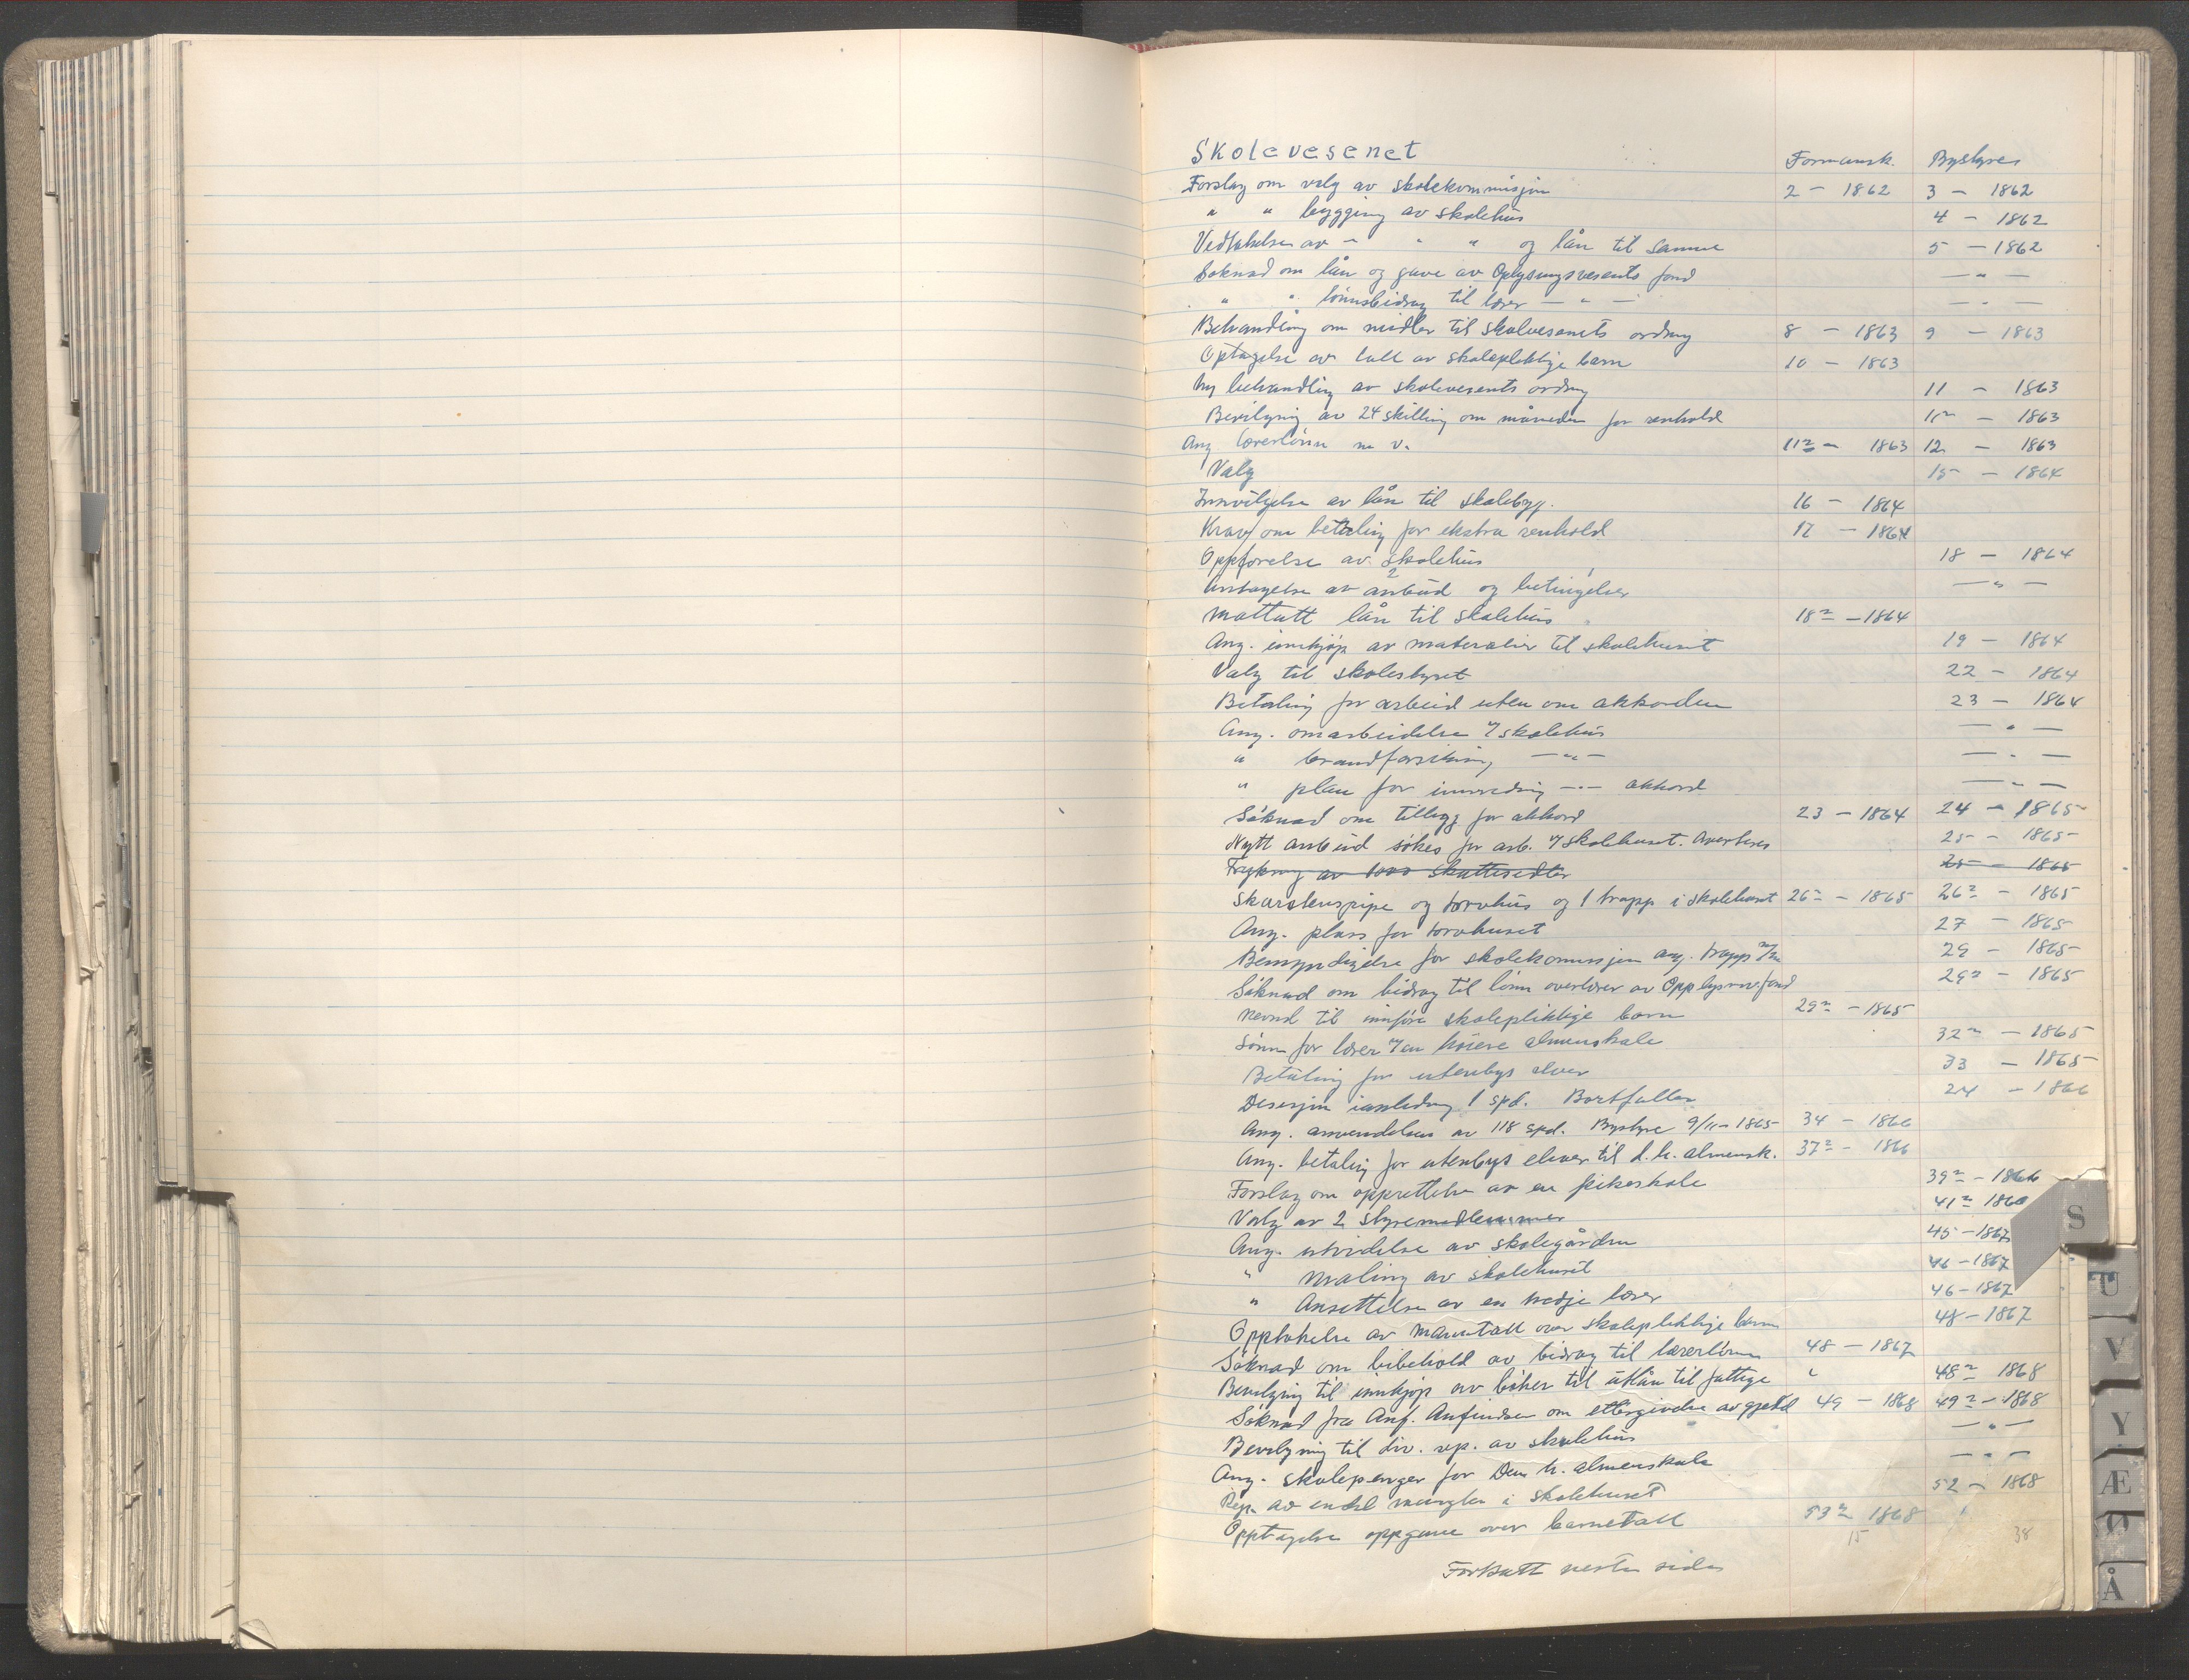 Skolevesenet Formansk. Bystyre
Forslag om valg av skolekommisjon 2 - 1862 3 - 1862
" " bygging av skolehus 4 - 1862
Vedtakelse av - " " og lån til samme 5 - 1862
Søknad om lån og gave av Oplysningsvesents fond — " —
" " lønnsbidrag til lærer — " — — " —
Behandling om midler til skolvesenets ordning 8 - 1863 9 - 1863
Optagelse av tall av skolepliktige barn 10 - 1863
Ny behandling av skolevesents ordning 11 - 1863
Bevilgning av 24 skilling om måneden for renhold 11² - 1863
Ang lærerlønn m v. 11² - 1863 12 - 1863
Valg 15 - 1864
Innvilgelse av lån til skolebyg. 16 - 1864
Krav om betaling for ekstra renhold 17 - 1864
Oppførelse av skolehus 18 - 1864
Antagelse av anbud og betingelser — " —
Mottatt lån til skolehus 18² - 1864
Ang. innkjøp av materialier til skolehuset 19 - 1864
Valg til skolestyret 22 - 1864
Betaling for arbeid uten om akkorden 23 - 1864
Ang. omarbeidelse skolehus — " —
" brandforsikring — " — — " —
" plan for innredning — " — akkord — " —
Søknad om tillegg for akkord 23 - 1864 24 - 1865
Nytt anbud søkes for arb. skolehuset. Averteres 25 - 1865
Trykning av 1000 skattesedler 25 - 1865
Skorstenspipe og torvhus og 1 trapp i skolehuset 26² - 1865 26² - 1865
Ang. plass for torvhuset 27 - 1865
Bemyndigelse for skolekomisjon ang. trapp 29 - 1865
Søknad om bidrag til lønn overlærer av fond 29² - 1865
Nevnd til innføre skolepliktige barn 29² - 1865
Lønn for lærer en høiere almenskole 32² - 1865
Betaling for utenbys elever 33 - 1865
innledning 1 spd. Bortfaller 24 - 1866
Ang. anvendelsen av 118 spd. Bystyre 9/11-1865 34 - 1866
Ang. betaling for utenbys elever til d. h. almensk. 37² - 1866
Forslag om opprettelse av en pikeskole 39² - 1866
Valg av 2 styremedlemmer 41² 1866
Ang. utvidelse av skolegården 45 - 1867
" Maling av skolehuset 46 - 1867
" Ansettelse av en tredje lærer 46 - 1867
Opptakelse av manntall over skolepliktige barn 48 - 1867
Søknad om bibehold av bidrag til lærerlønn 48 - 1867
Bevilgning til innkjøp av bøker til utlån til fattige " 48² 1868
Søknad fra Anf. Anfindsen om ettergivelse av gjeld 49 - 1868 49² - 1868
Bevilgning til div. rep. av skolehus — " —
Ang. skolepenger for Den h. almenskole — " —
Rep. av endel mangler i skolehuset 52 - 1868
Opptagelse oppgave over barnetall 53² 1868
15 38
Forsatt neste side
S
U
V
Y
Æ
Ø
Å